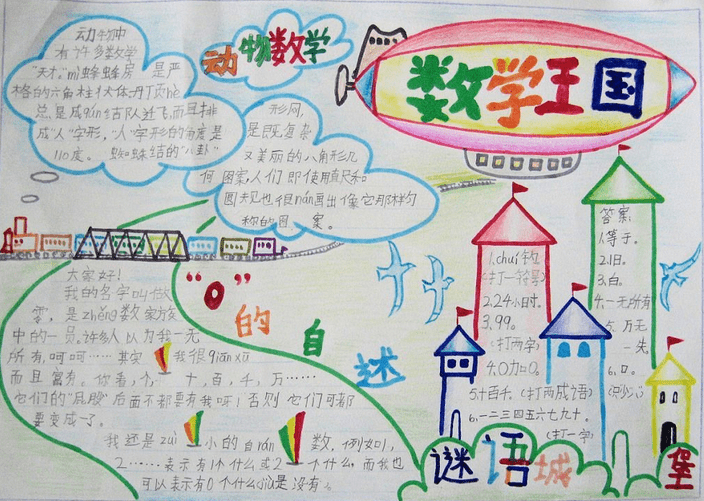 数学王国
动物数学
动物中
有许多数学
"天才"mì蜂蜂房 是严
格的六角柱状体丹顶hè
总是成qún结队迁飞,而且排
成"人"字形,"人"字形的角度是
110度。 蜘蛛结的"八卦"
形网,
是既复杂
又美丽的八角形几
何图案,人们即使用直尺和
圆规也很nán画出像它那样匀
称的图案。
"0"的自述
大家好!
我的名字叫做
零,是zhěng数家族
中的一员。许多人以为我一无
所有,呵呵……其实我很qiān xū
而且富有。你看,个、十,百,千,万……
它们的"屁股"后面不都要有我呀!否则它们可都
要变成一了。
我还是zuì小的自rán数,例如1,
2……表示有1个什么或2个什么,而我也
可以表示有0个什么,jiù是没有。
1.chuí
(打一符号)
2.24小时。
3.99。
(打两字)
4.0力口0。
5.十百千。(打两成语)
6.一二三四五六七九十。
(打一字)
答案:
1.等于。
2.旧。
3.白。
4.一无所有
5.万无
一失。
6.口。
谜语城堡